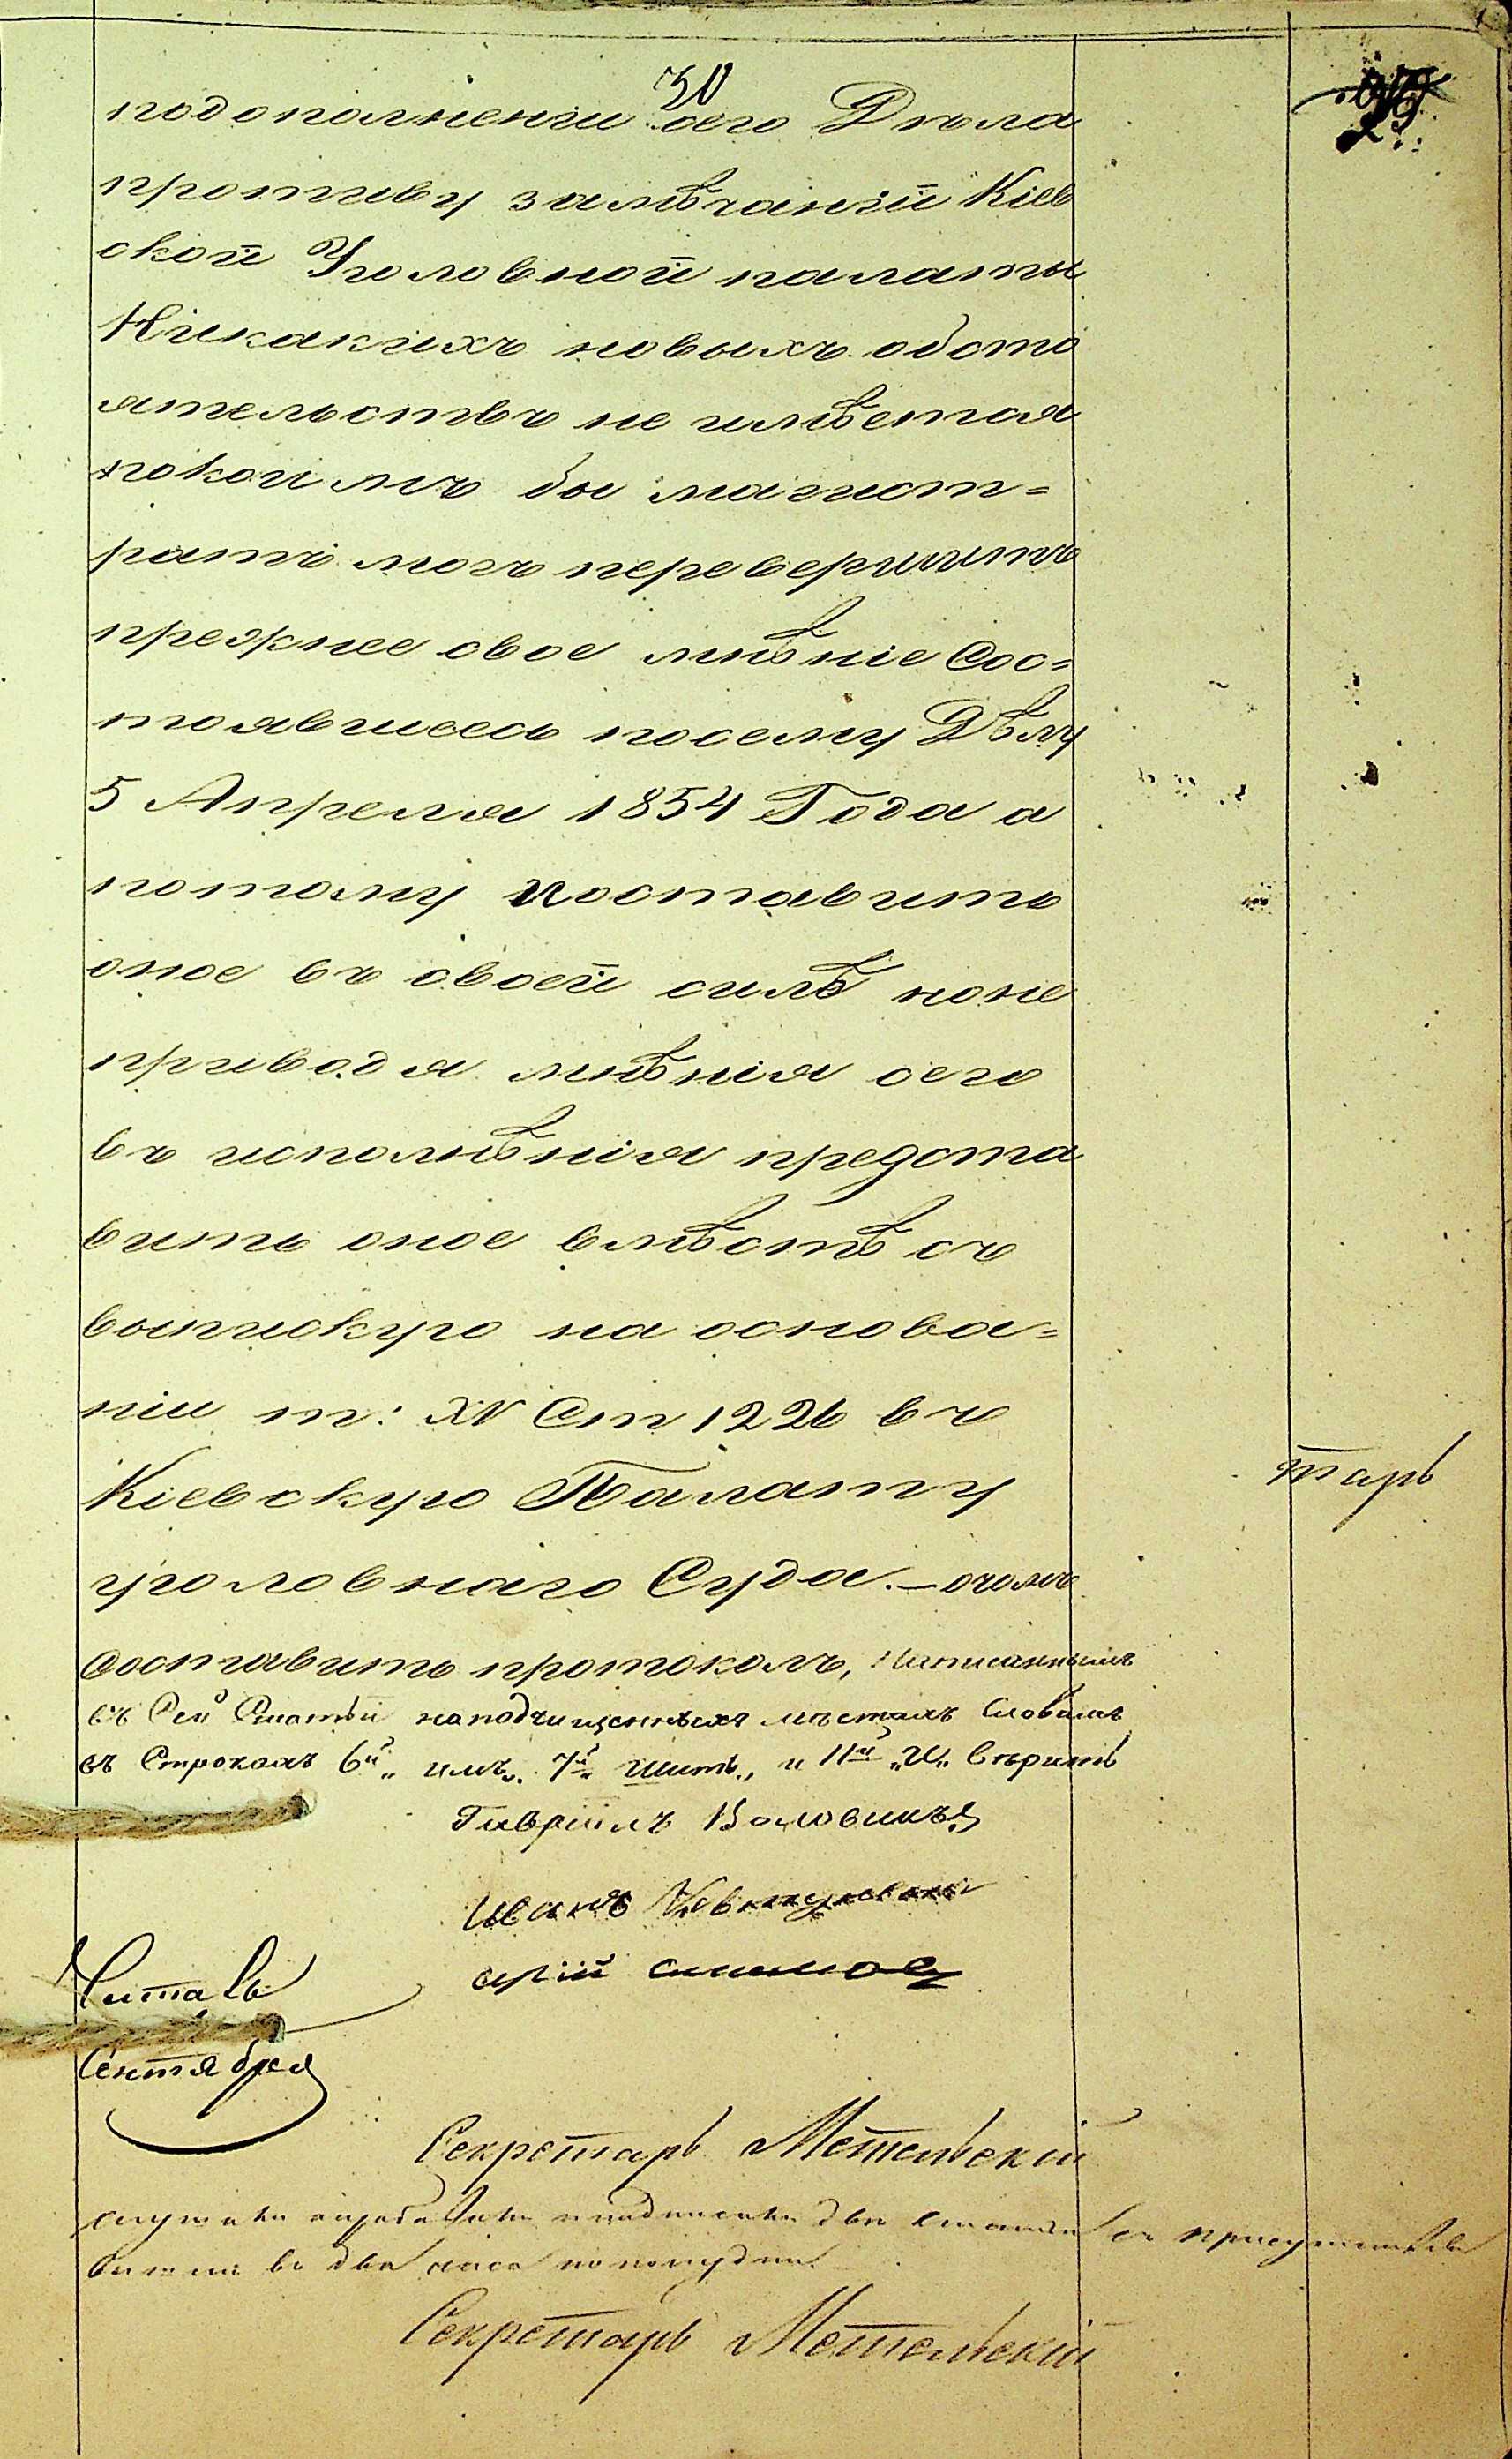 30
подополненіи сего Дѣла
противу замѣчаній Кіев
ской Уголовной палаты
Никакихъ новыхъ обсто
ятельствъ не имѣется
покоимъ бы магист=
ратъ могъ перевершить
прежнее свое мнѣніе Сос=
тоявшееся посему Дѣлу
5 Апреля 1854 Года а
потому поставить
оное въ своей силѣ ноне
приводя мнѣнія сего
въ исполнѣнія предста
вить оное вмѣстѣ съ
выпискую на основа=
ніи т: XV Ст 1226 въ
Кіевскую Палату
уголовнаго Суда. — очомъ
Составить протоколъ, Написаннымъ
въ Сей Статьи наподчищенныхъ мѣстахъ Словамъ
въ Строкахъ 6й „имъ„ 7й „шить„ и 11й „и„ вѣрить
Гавріилъ
Иванъ
Читалъ
Сентября
Секретарь Метельскій
тарь
слушали и подписали две Статьи съ присутствія
вышли въ два часа по полудни
Секретарь Метельскій